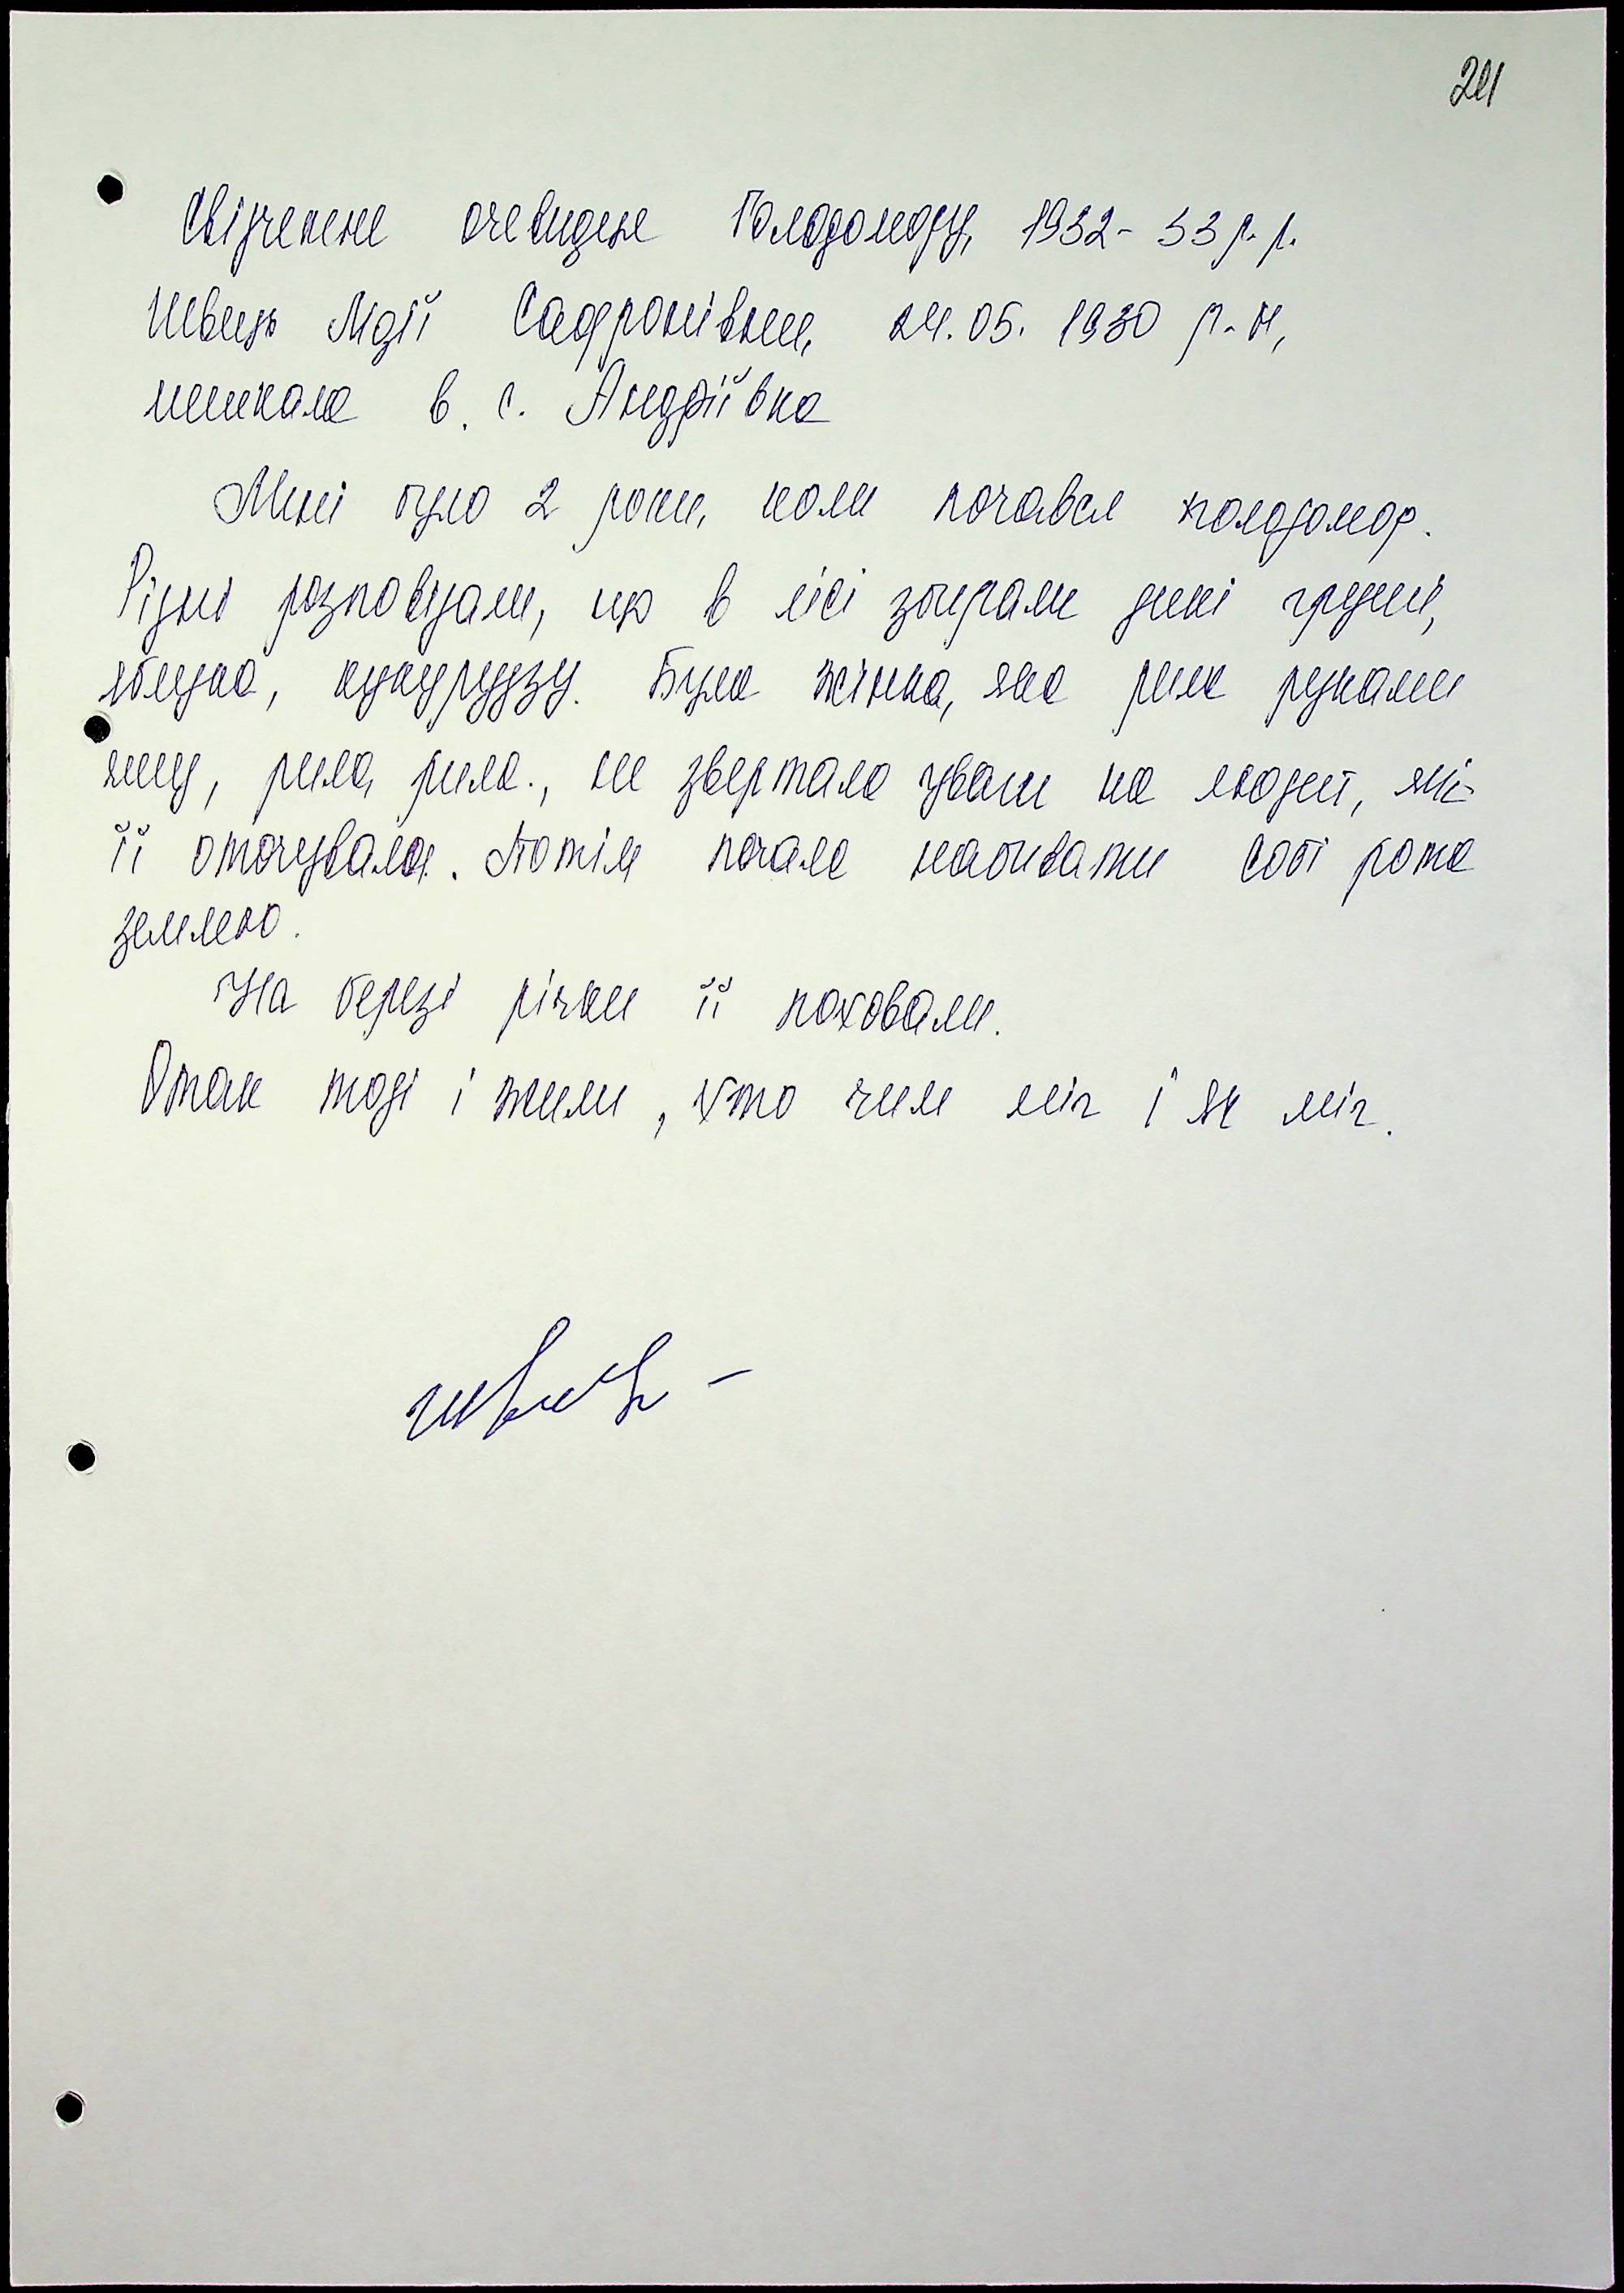 241
Свідчення очевидця Голодомору, 1932-33 р.р.
Швець Мрії Сафронівни, 24.05.1930 р.н,
мешкала в. с. Андріївка
Мині було 2 роки, коли почався голодомор.
Рідні розповідали, що в лісі збирали дикі груші,
яблука, кукурудзу. Була жінка, яка рила руками
яму, рила, рила., не звертала уваги на людей, які
її оточували. Потім почала набивати собі рота
землею.
На березі річки її поховали.
Отак тоді і жили, хто чим міг і як міг.